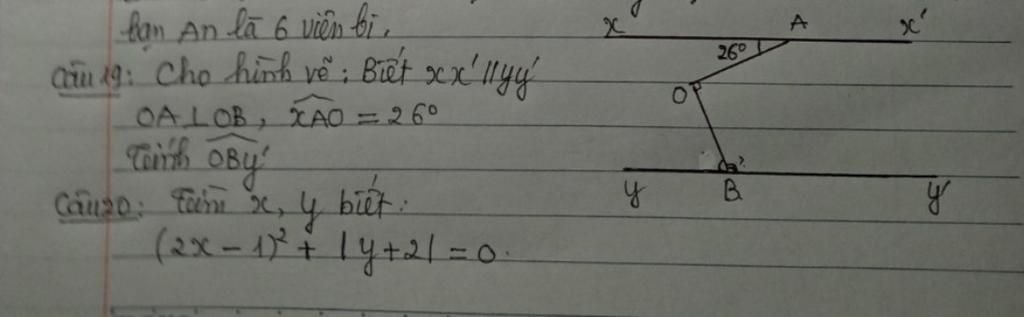 bạn An là 6 viên bi.
Câu 19: Cho hình vẽ; Biết xx' // yy'
OA ⊥ OB, \widehat{xAO} = 26°
Tính \widehat{OBy'}
Câu 20: Tìm x, y biết:
(2x - 1)² + |y + 2| = 0.
x A x'
26°
O
y B y'